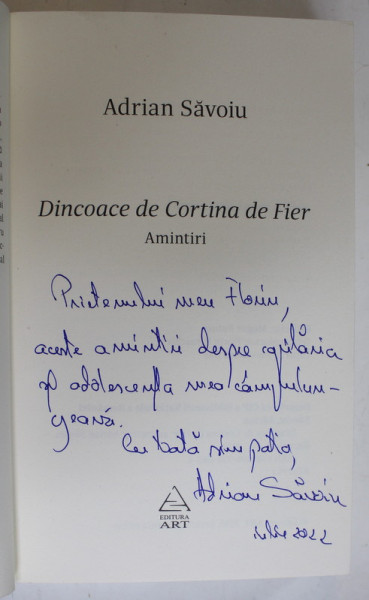 Adrian Săvoiu
Dincoace de Cortina de Fier
Amintiri
Prietenului meu Florin,
aceste amintiri despre copilăria
și adolescența mea câmpulun-
geană.
Cu toată simpatia,
Adrian Săvoiu
EDITURA
ART
iulie 2022